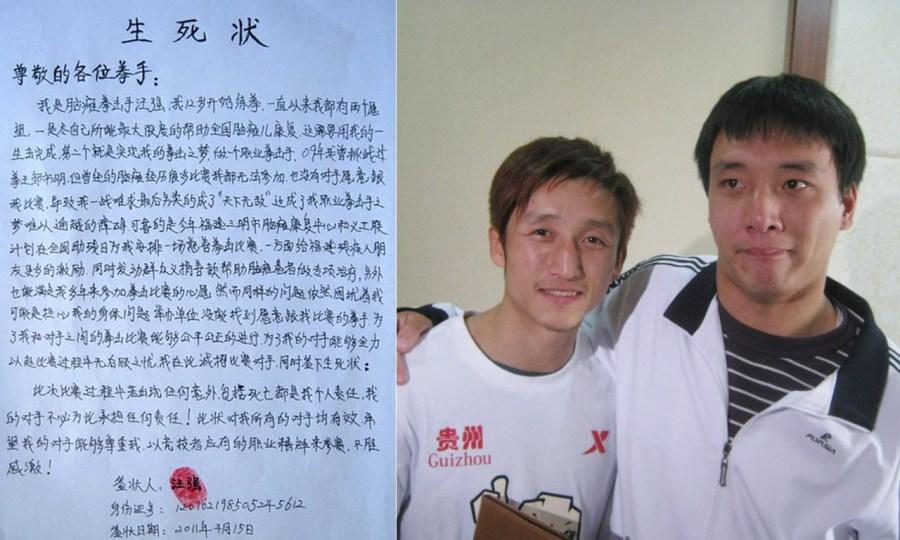 生死状
尊敬的各位拳手：
我是脑瘫拳击手汪强，我12岁开始练拳，一直以来我都有两个意
愿，一是尽自己所能最大限度的帮助全国脑瘫儿康复，这需要用我的一
生去完成，第二个就是实现我的拳击之梦，做个职业拳击手，09年我曾挑战过
拳王邹市明，但曾经的脑瘫经历很多比赛我都无法参加，也没有对手愿意跟
我比赛，导致我一战难求最后另类的成了"天下无敌"，这成了我职业拳击手之
梦难以逾越的障碍，可喜的是今年福建三明市脑瘫康复中心和义工联
计划在全国助残日为我安排一场慈善拳击比赛，一方面给福建残疾人朋
友更多的激励，同时发动群众义捐善款帮助脑瘫患者的专项治疗，另外
也能满足我多年来参加拳击比赛的心愿，然而同样的问题依然困扰着我
可能是担心我的身体问题，举办单位没能找到愿意跟我比赛的拳手，为
了我和对手之间的拳击比赛能够公平公正的进行，为了我的对手能够全力
以赴比赛过程中无后顾之忧，我在此诚招比赛对手，同时签下生死状：
此次比赛过程中若出现任何意外，包括死亡都是我个人责任，我
的对手不必为此承担任何责任！此状对我所有的对手均有效，希
望我的对手能够尊重我，以竞技者应有的职业精神来参赛，不胜
感激！
签状人：汪强
身份证号：
签状日期：2011年4月15日
贵州
Guizhou
X